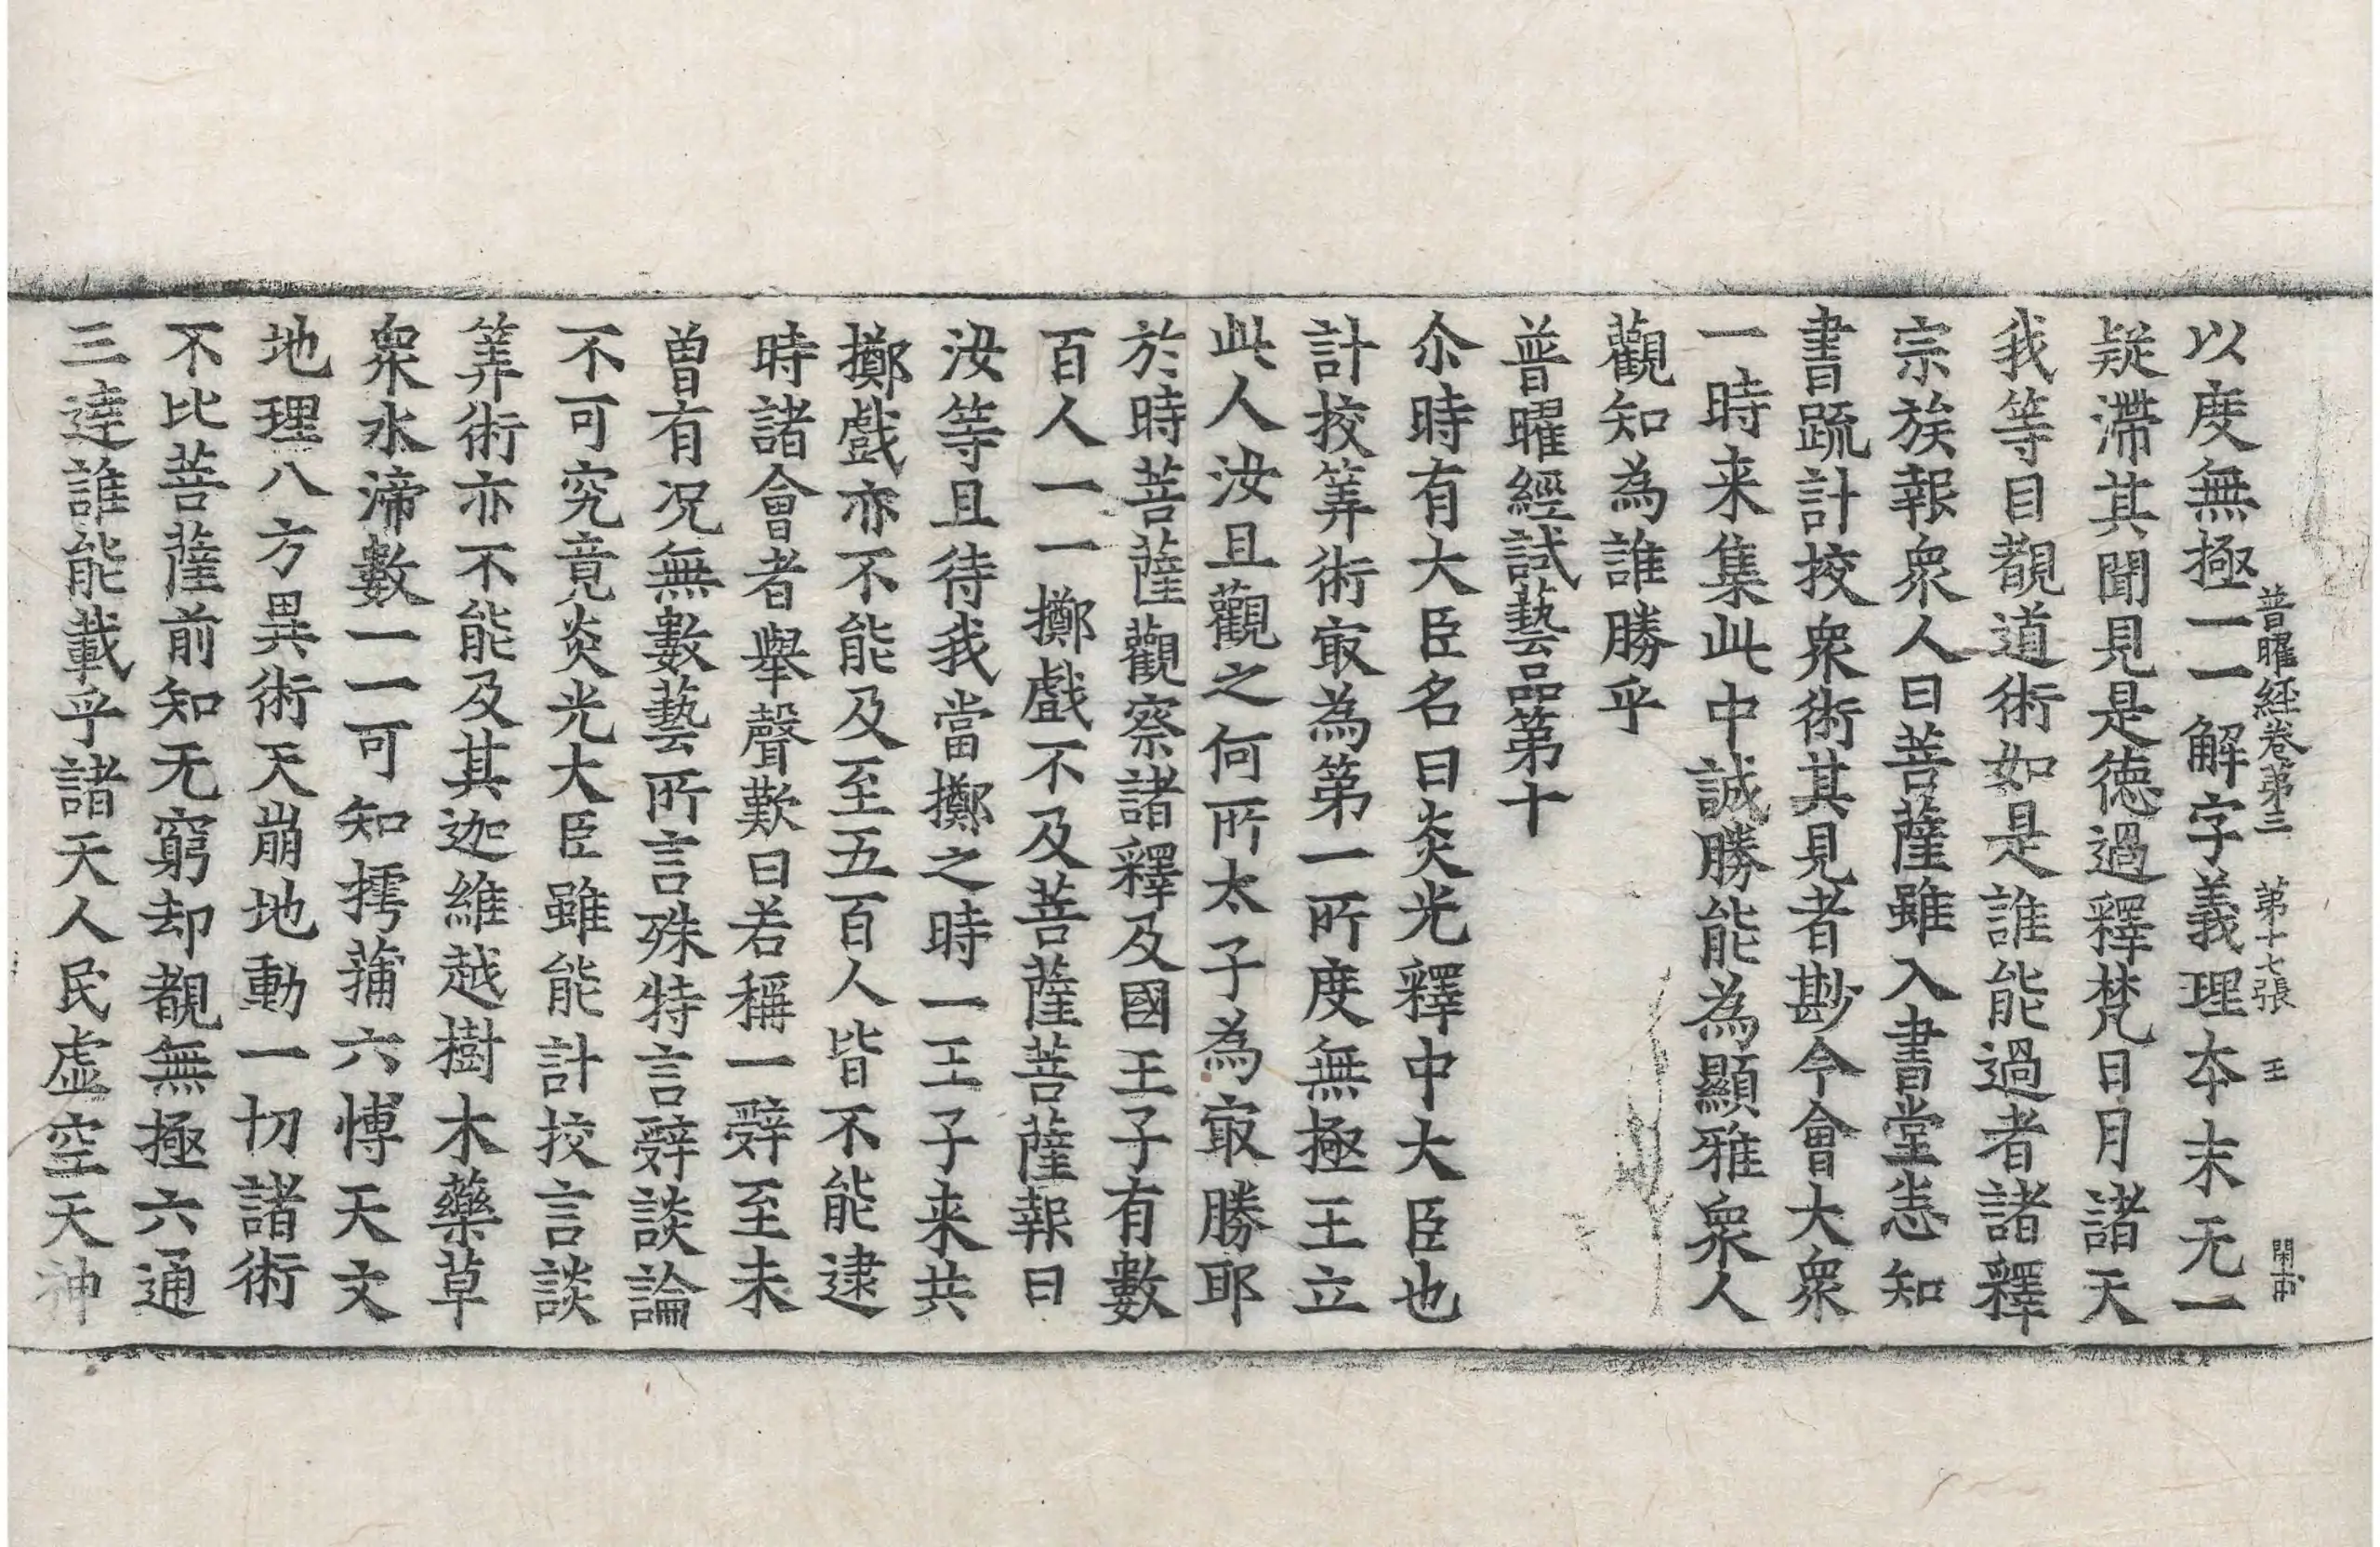 普曜經卷第三　第十七張　王
以度無極一一解字義理夲末无一
疑滯其聞見是德過釋梵日月諸天
我等目覩道術如是誰能過者諸釋
宗族報衆人曰菩薩雖入書堂悉知
書䟽計挍衆術其見者尠今會大衆
一時来集此中誠勝能為顯雅衆人
觀知為誰勝乎
普曜經試藝品第十
尒時有大臣名曰炎光釋中大臣也
計挍筭術㝡為第一所度無極王立
此人汝且觀之何所太子為㝡勝耶
於時菩薩觀察諸釋及國王子有數
百人一一擲戲不及菩薩菩薩報曰
汝等且待我當擲之時一王子来共
擲戲亦不能及至五百人皆不能逮
時諸會者舉聲歎曰若稱一辤至未
曽有況無數藝所言殊特言辤談論
不可究竟炎光大臣雖能計挍言談
筭術亦不能及其迦維越樹木藥草
衆水渧數一一可知摴蒱六愽天文
地理八方異術天崩地動一切諸術
不比菩薩前知无窮却覩無極六通
三達誰能載乎諸天人民虛空天神